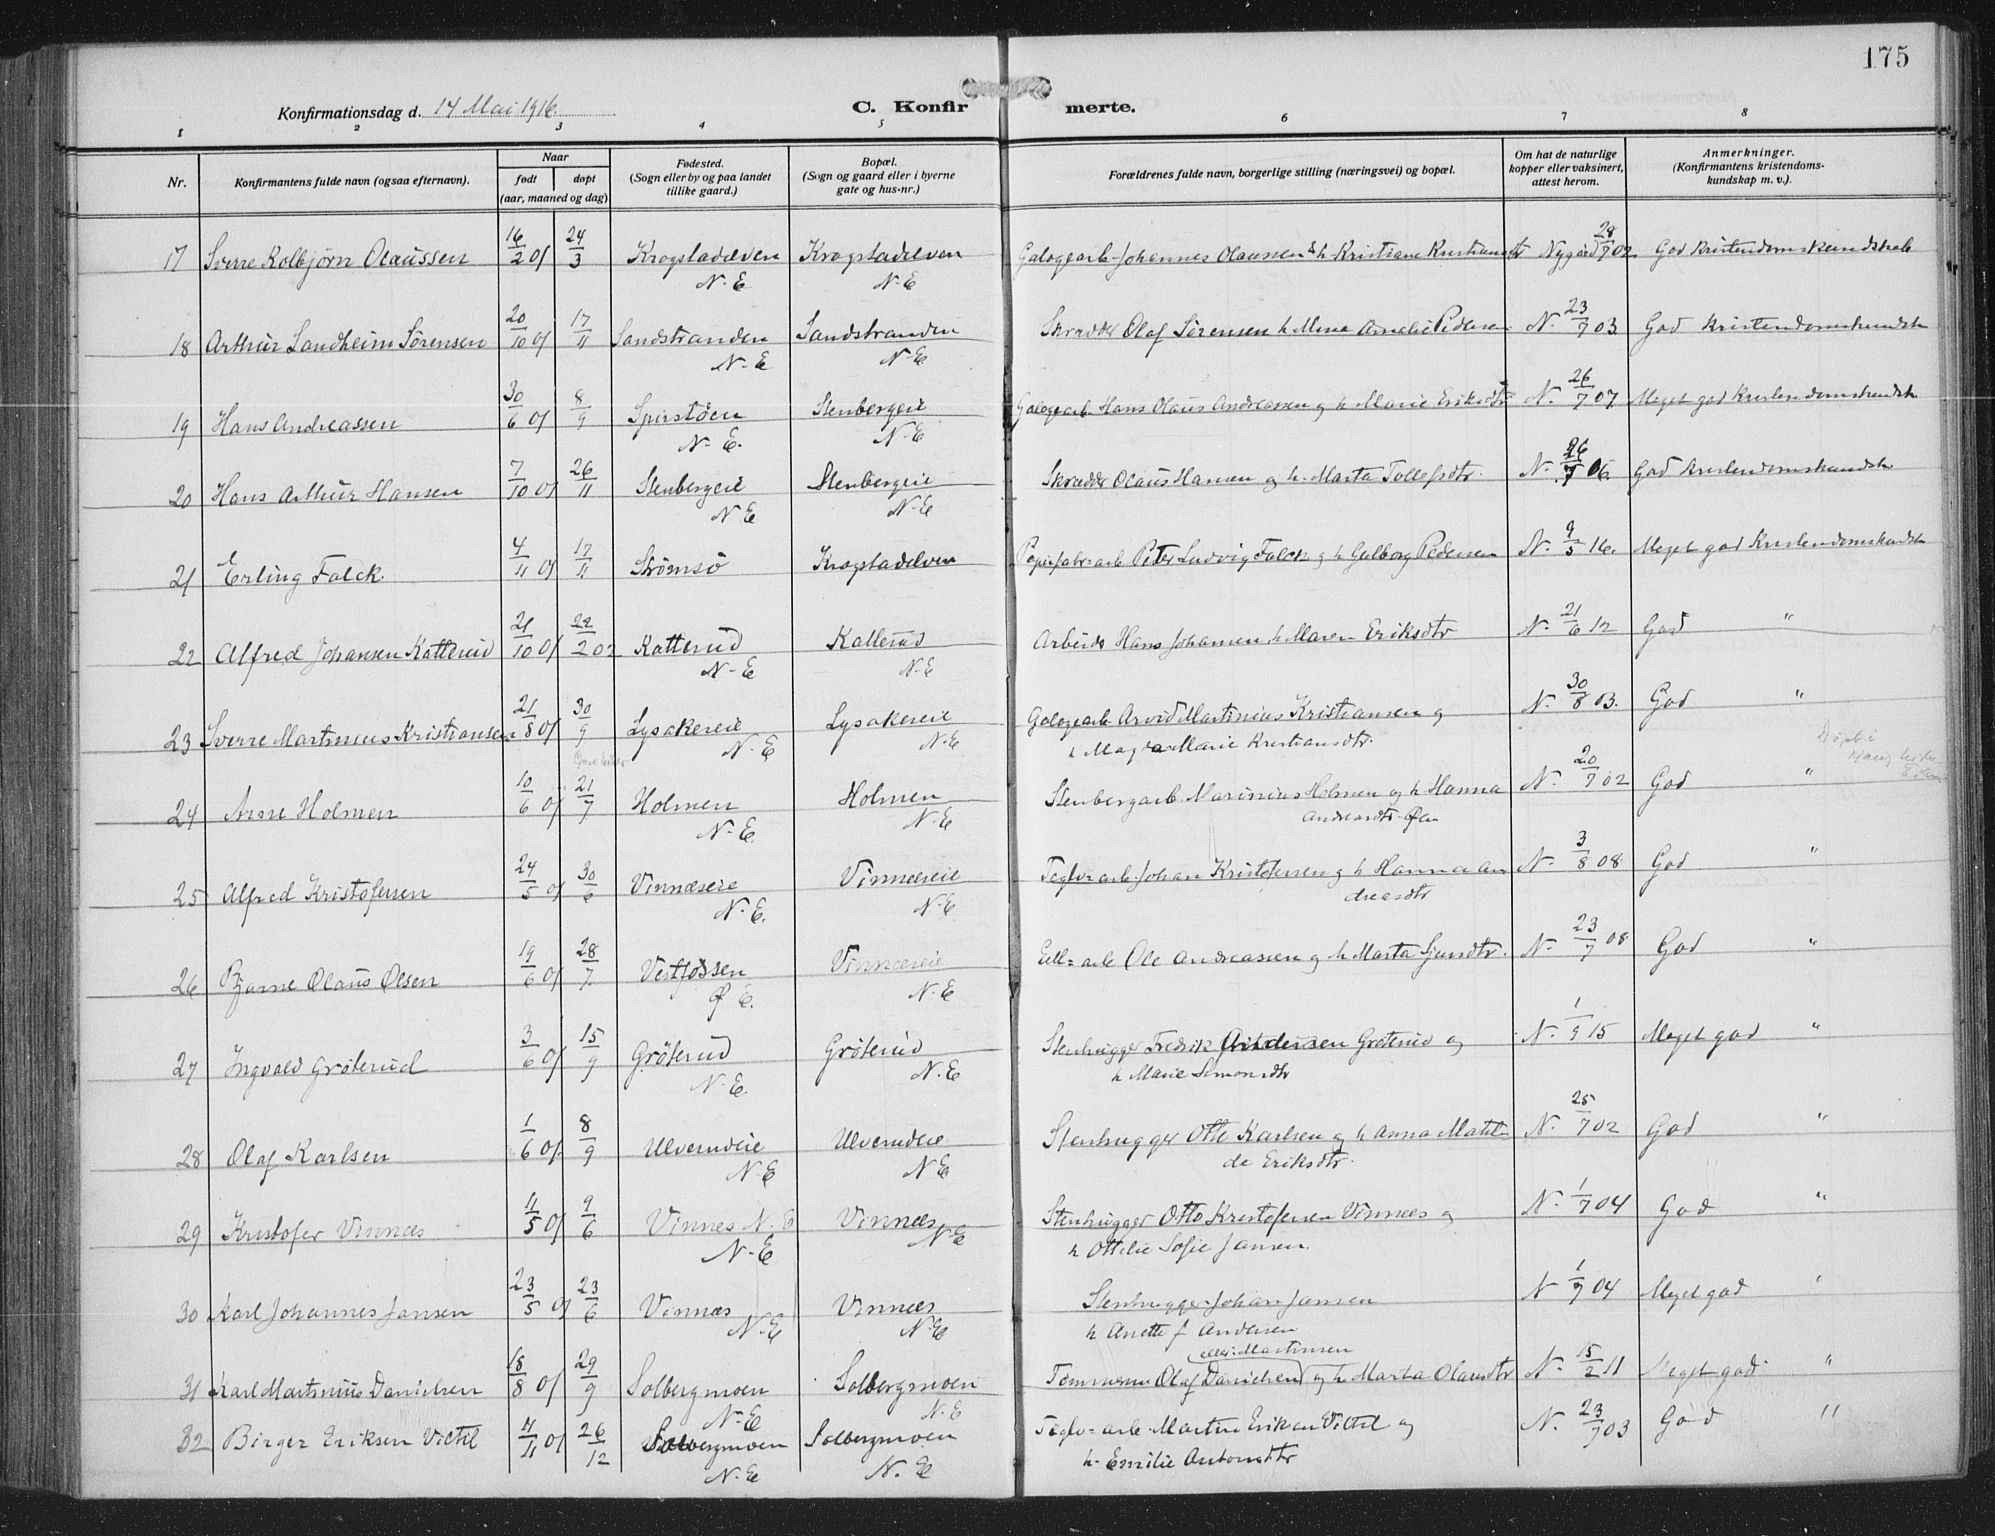 175
Konfirmationsdag d. 14 Mai 1916.
C. Konfirmerte.
1 2 3 4 5 6 7 8
Nr. Konfirmantens fulde navn (ogsaa efternavn). Naar født døpt (aar, maaned og dag) Fødested. (Sogn eller by og paa landet tillike gaard.) Bopæl. (Sogn og gaard eller i byerne gate og hus-nr.) Forældrenes fulde navn, borgerlige stilling (næringsvei) og bopæl. Om hat de naturlige kopper eller vaksinert, attest herom. Anmerkninger. (Konfirmantens kristendomskundskap m. v.).
17 Sverre Kolbjørn Olaussen 16/2 01 24/3 Krogstadelven N-E Krogstadelven N-E Galogearb Johannes Olaussen & h. Kristiane Nygård 28/7 02 God Kristendomskundskab
18 Arthur Sandheim Sørensen 20/10 01 17/11 Sandstranden N-E Sandstranden N-E Skrædder Olaf Sørensen h. Mina Amalie Pedersen N. 23/7 03 God Kristendomskundsk
19 Hans Andreassen 30/6 01 8/9 Spirstøen N-E. Stenbergeie N-E Galogearb Hans Olaus Andreassen og h Marie Eriksdtr N. 26/7 07 Meget god Kristendomskundsk
20 Hans Arthur Hansen 7/10 01 26/11 Stenbergeie N-E Stenbergeie N-E Skrædder Olaus Hansen og h. Marta Tollefsdtr. N. 26/7 06. God Kristendomskundsk
21 Erling Falck. 4/11 01 17/11 Strømsø Krogstadelven Papirfabr=arb Peter Ludvig Falck og h Gulborg Pedersen N. 9/5 16. Meget god Kristendomskundsk
22 Alfred Johansen Katterud 21/10 01 22/2 02 Katterud N-E Katterud N-E Arbeider Hans Johansen h Maren Eriksdtr N. 21/6 12 God "
23 Sverre Martinius Kristiansen 21/8 01 30/9 Lysakereie N-E Lysakereie N-E Galogearb Arvid Martinius Kristiansen og
h Magda Marie Kristiansdtr. N. 30/8 03. God "
Døpt i
24 Arne Holmen 10/6 01 21/7 Holmen N-E Holmen N-E Stenbergarb Marinius Holmen og h Hanna
Andreasdtr. N 20/7 02 God "
25 Alfred Kristofersen 24/5 01 30/6 Vinnæseie N-E. Vinnæseie N-E Teglv=arb Johan Kristofersen og h Hanna An
dreasdtr N. 3/8 08 God "
26 Bjarne Olaus Olsen 19/6 01 28/7 Vestfossen Ø E. Vinnæseie N.E Cell=arb Ole Andreassen og h Marta Sjursdtr. N. 23/7 08 God "
27 Ingvald Grøterud 3/6 01 15/9 Grøterud N.E. Grøterud N.E Stenhugger Fredrik Andersen Grøterud og
h Marie Simonsdtr N. 1/9 15 Meget god "
28 Olaf Karlsen 1/6 01 8/9 Ulverudeie N.E Ulverudeie N.E Stenhugger Otto Karlsen og h Anna Matil
de Eriksdtr. N. 25/7 02 God "
29 Kristofer Vinnæs 11/5 01 9/6 Vinnes N. E N-E Vinnæs N E Stenhugger Otto Kristofersen Vinnæs og
h Ottilie Sofie Jansen. N. 1/7 04 God "
30 Karl Johannes Jansen 23/5 01 23/6 Vinnæs N-E Vinnæs N.E Stenhugger Johan Jansen
h Anette f Andersen N 1/7 04 Meget god "
31 Karl Martinius Danielsen 18/8 01 29/9 Solbergmoen N-E Solbergmoen N.E Tømmerm Olaf Danielsen (eller: Martinsen) og h Marta Olausdtr N. 15/2 11 Meget god "
32 Birger Eriksen Victil 4/11 01 26/12 Solbergmoen N-E Solbergmoen N. E Teglv=arb. Martin Eriksen Victil og
h. Emilie Antonsdtr N. 23/7 03 God "